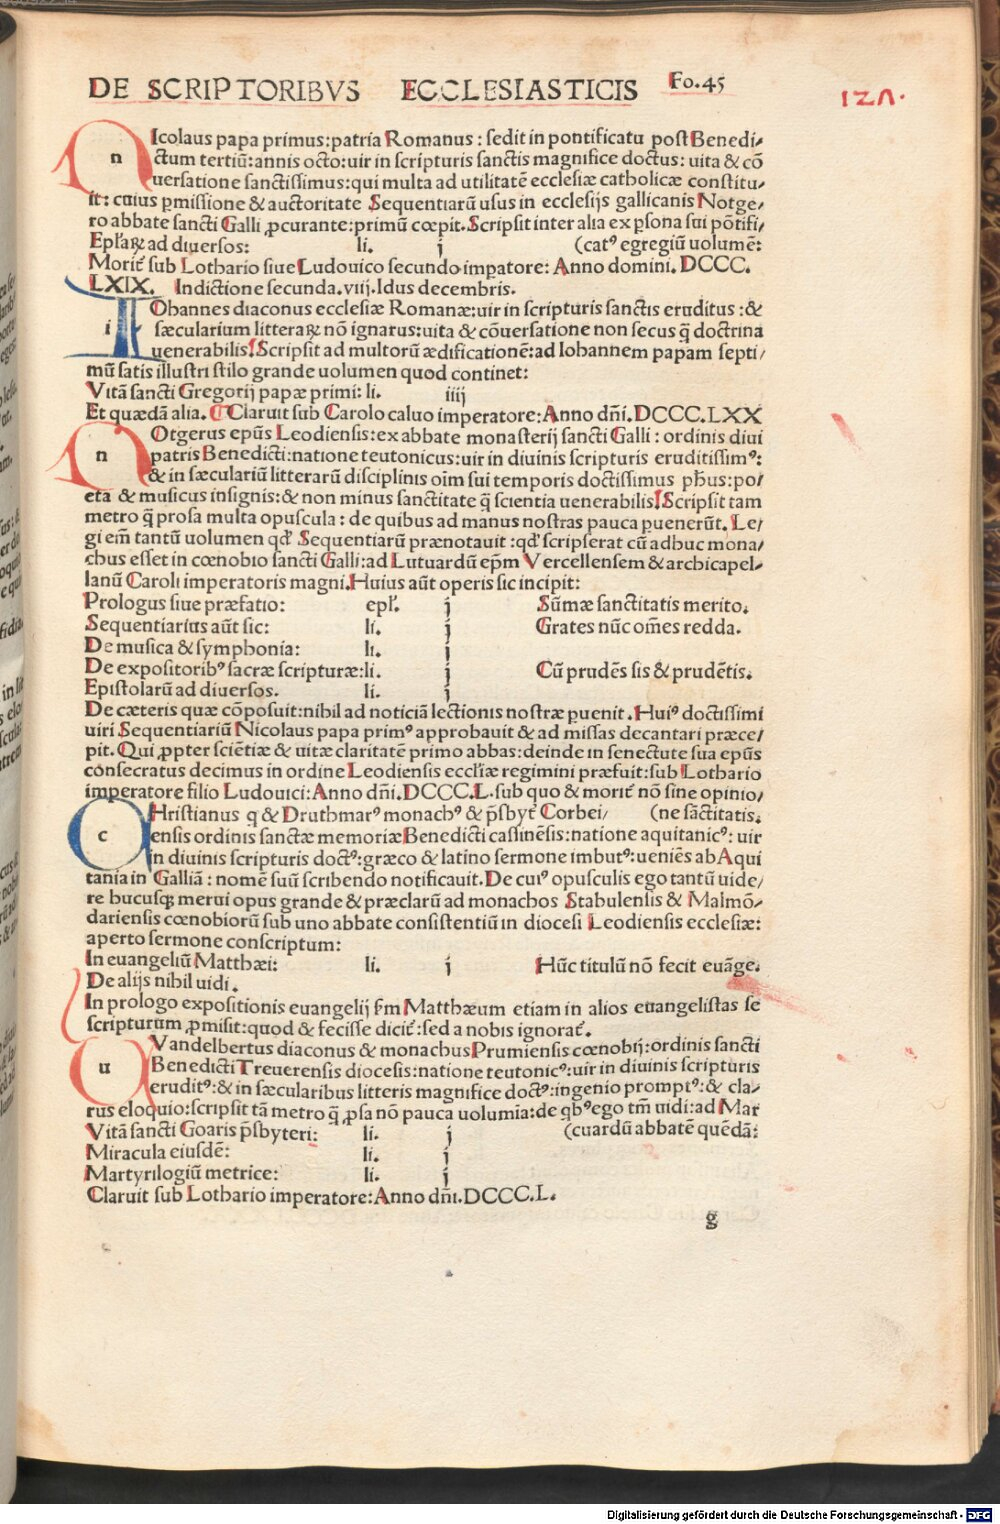 DE SCRIPTORIBVS ECCLESIASTICIS Fo.45
127.
nIcolaus papa primus:patria Romanus: sedit in pontificatu post Benedi-
ctum tertiũ:annis octo:uir in scripturis sanctis magnifice doctus: uita & cõ
uersatione sanctissimus:qui multa ad utilitatẽ ecclesiæ catholicæ constitu-
it: cuius ꝑmissione & auctoritate Sequentiarũ usus in ecclesijs gallicanis Notge-
ro abbate sancti Galli ꝓcurante:primũ cœpit. Scripsit inter alia ex ꝑsona sui põtifi-
Epľaꝝ ad diuersos: li. j (catꝰ egregiũ uolumẽ:
Morit̃ sub Lothario siue Ludouico secundo imꝑatore: Anno domini. DCCC.
LXIX. Indictione secunda. viij. Idus decembris.
iOhannes diaconus ecclesiæ Romanæ:uir in scripturis sanctis eruditus :&
sæcularium litteraꝝ nõ ignarus:uita & cõuersatione non secus q̃ doctrina
uenerabilis. Scripsit ad multorũ ædificationẽ:ad Iohannem papam septi-
mũ satis illustri stilo grande uolumen quod continet:
Vitã sancti Gregorij papæ primi: li. iiij
Et quædã alia. Claruit sub Carolo caluo imperatore: Anno dñi. DCCC.LXX
nOtgerus ep̃us Leodiensis:ex abbate monasterij sancti Galli: ordinis diui
patris Benedicti:natione teutonicus:uir in diuinis scripturis eruditissimꝰ:
& in sæculariũ litterarũ disciplinis oĩm sui temporis doctissimus pħus:po-
eta & musicus insignis:& non minus sanctitate q̃ scientia uenerabilis. Scripsit tam
metro q̃ prosa multa opuscula: de quibus ad manus nostras pauca ꝑuenerũt. Le-
gi em̃ tantũ uolumen qď Sequentiarũ prænotauit :qď scripserat cũ adhuc mona-
chus esset in cœnobio sancti Galli:ad Lutuardũ ep̃m Vercellensem & archicapel-
lanũ Caroli imperatoris magni. Huius aũt operis sic incipit:
Prologus siue præfatio: epľ. j Sũmæ sanctitatis merito.
Sequentiarius aũt sic: li. j Grates nũc om̃es redda.
De musica & symphonia: li. j
De expositoribꝰ sacræ scripturæ: li. j Cũ prudẽs sis & prudẽtis.
Epistolarũ ad diuersos. li. j
De cæteris quæ cõposuit:nihil ad noticiã lectionis nostræ ꝑuenit. Huiꝰ doctissimi
uiri Sequentiariũ Nicolaus papa primꝰ approbauit & ad missas decantari præce-
pit. Qui ꝓpter sciẽtiæ & uitæ claritatẽ primo abbas: deinde in senectute sua ep̃us
consecratus decimus in ordine Leodiensis eccľiæ regimini præfuit:sub Lothario
imperatore filio Ludouici: Anno dñi. DCCC.L. sub quo & morit̃ nõ sine opinio-
cHristianus q & Druthmarꝰ monachꝰ & p̃sbyt̃ Corbei- (ne sãctitatis.
ensis ordinis sanctæ memoriæ Benedicti cassinẽsis:natione aquitanicꝰ: uir
in diuinis scripturis doctꝰ:græco & latino sermone imbutꝰ:ueniẽs ab Aqui
tania in Galliã: nomẽ suũ scribendo notificauit. De cuiꝰ opusculis ego tantũ uide-
re hucusꝗ merui opus grande & præclarũ ad monachos Stabulensis & Malmõ-
dariensis cœnobiorũ sub uno abbate consistentiũ in diocesi Leodiensis ecclesiæ:
aperto sermone conscriptum:
In euangeliũ Matthæi: li. j Hũc titulũ nõ fecit euãge.
De alijs nihil uidi.
In prologo expositionis euangelij ẜm Matthæum etiam in alios euangelistas se
scripturum ꝓmisit:quod & fecisse dicit̃: sed a nobis ignorat̃.
uVandelbertus diaconus & monachus Prumiensis cœnobij: ordinis sancti
Benedicti Treuerensis diocesis:natione teutonicꝰ:uir in diuinis scripturis
eruditꝰ:& in sæcularibus litteris magnifice doctꝰ:ingenio promptꝰ:& cla-
rus eloquio:scripsit tã metro q̃ ꝓsa nõ pauca uolumia:de qbꝰ ego tm̃ uidi:ad Mar
Vitã sancti Goaris p̃sbyteri: li. j (cuardũ abbatẽ quẽdã:
Miracula eiusdẽ: li. j
Martyrilogiũ metrice: li. j
Claruit sub Lothario imperatore: Anno dñi. DCCC.L.
g
Digitalisierung gefördert durch die Deutsche Forschungsgemeinschaft - DFG